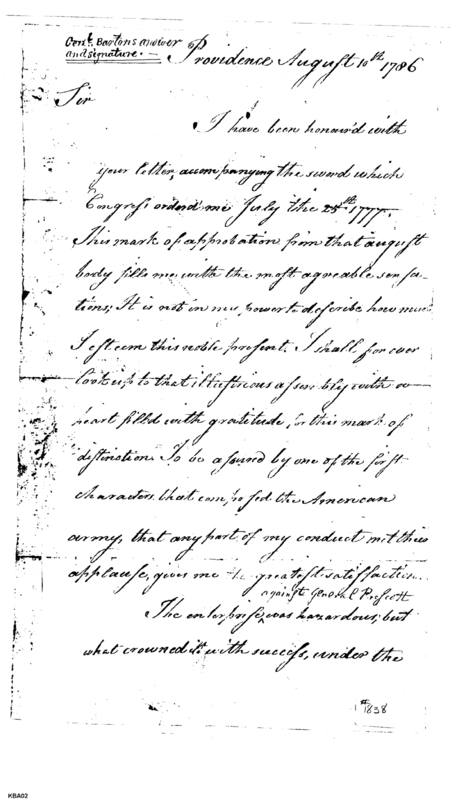 Genl. Bartons answer
and signature.
Providence August 10th 1786
Sir
I have been honour'd with
your letter, accompanying the sword which
Congress order'd me July the 25th 1777.
This mark of approbation from that august
body fills me with the most agreable sensa-
tions; It is not in my power to describe how much
I esteem this noble present. I shall for ever
look up to that illustrious assembly with a
heart filled with gratitude for this mark of
distinction. To be assured by one of the first
characters that composed the American
army, that any part of my conduct met their
applause, gives me the greatest satisfaction.
against General Prescott
The enterprise, was hazardous; but
what crowned it with success, under the
1838
KBA02